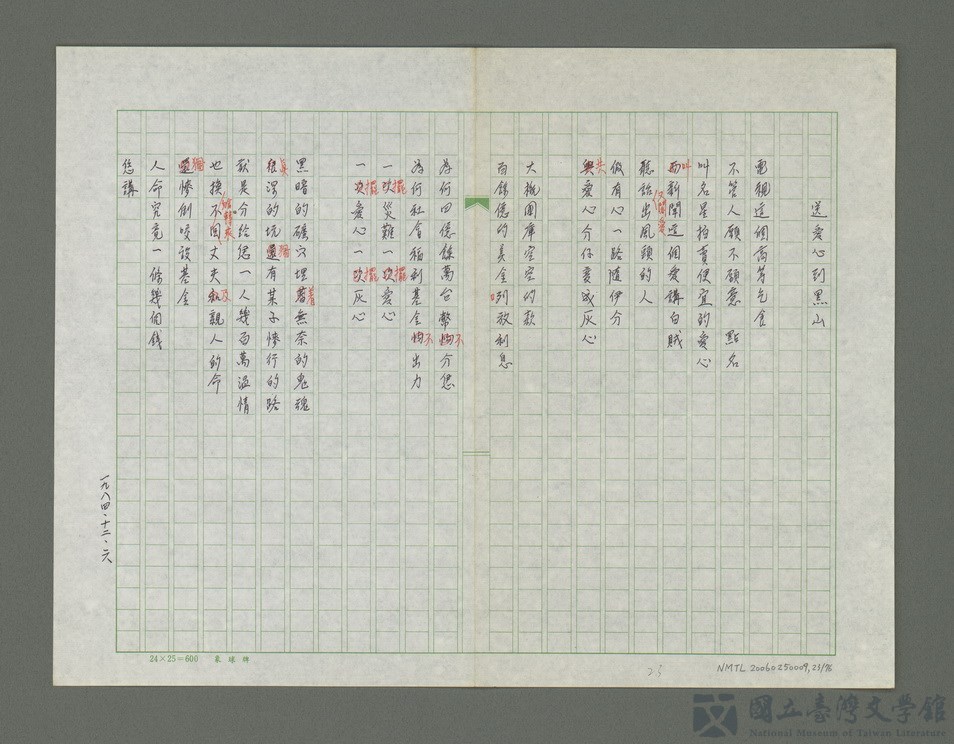 送愛心到黑山
電視這個高等乞食
不管人願不願意 點名
叫名星拍賣便宜的愛心
叫
而新聞這個愛講白賊
又閣愛
聽話出風頭的人
假有心一路隨伊分
共
與愛心分仔變成灰心
大概國庫空空的款
百餘億的美金咧放利息
為何四億餘萬台幣怕不分您
為何社會福利基金怕不出力
一次擺災難一次擺愛心
一次擺愛心一次擺灰心
黑暗的礦穴埋蓄著無奈的鬼魂
很真深的坑還猶有某子慘行的路
就是分給您一人幾百萬溫情
也換不回丈夫和及親人的命
還猶慘倒咬設基金
人命究竟一條幾個錢
您講
一九八四、十二、六
24×25=600
NMTL 20060250009,23/96
23
國立臺灣文學館
National Museum of Taiwan Literature